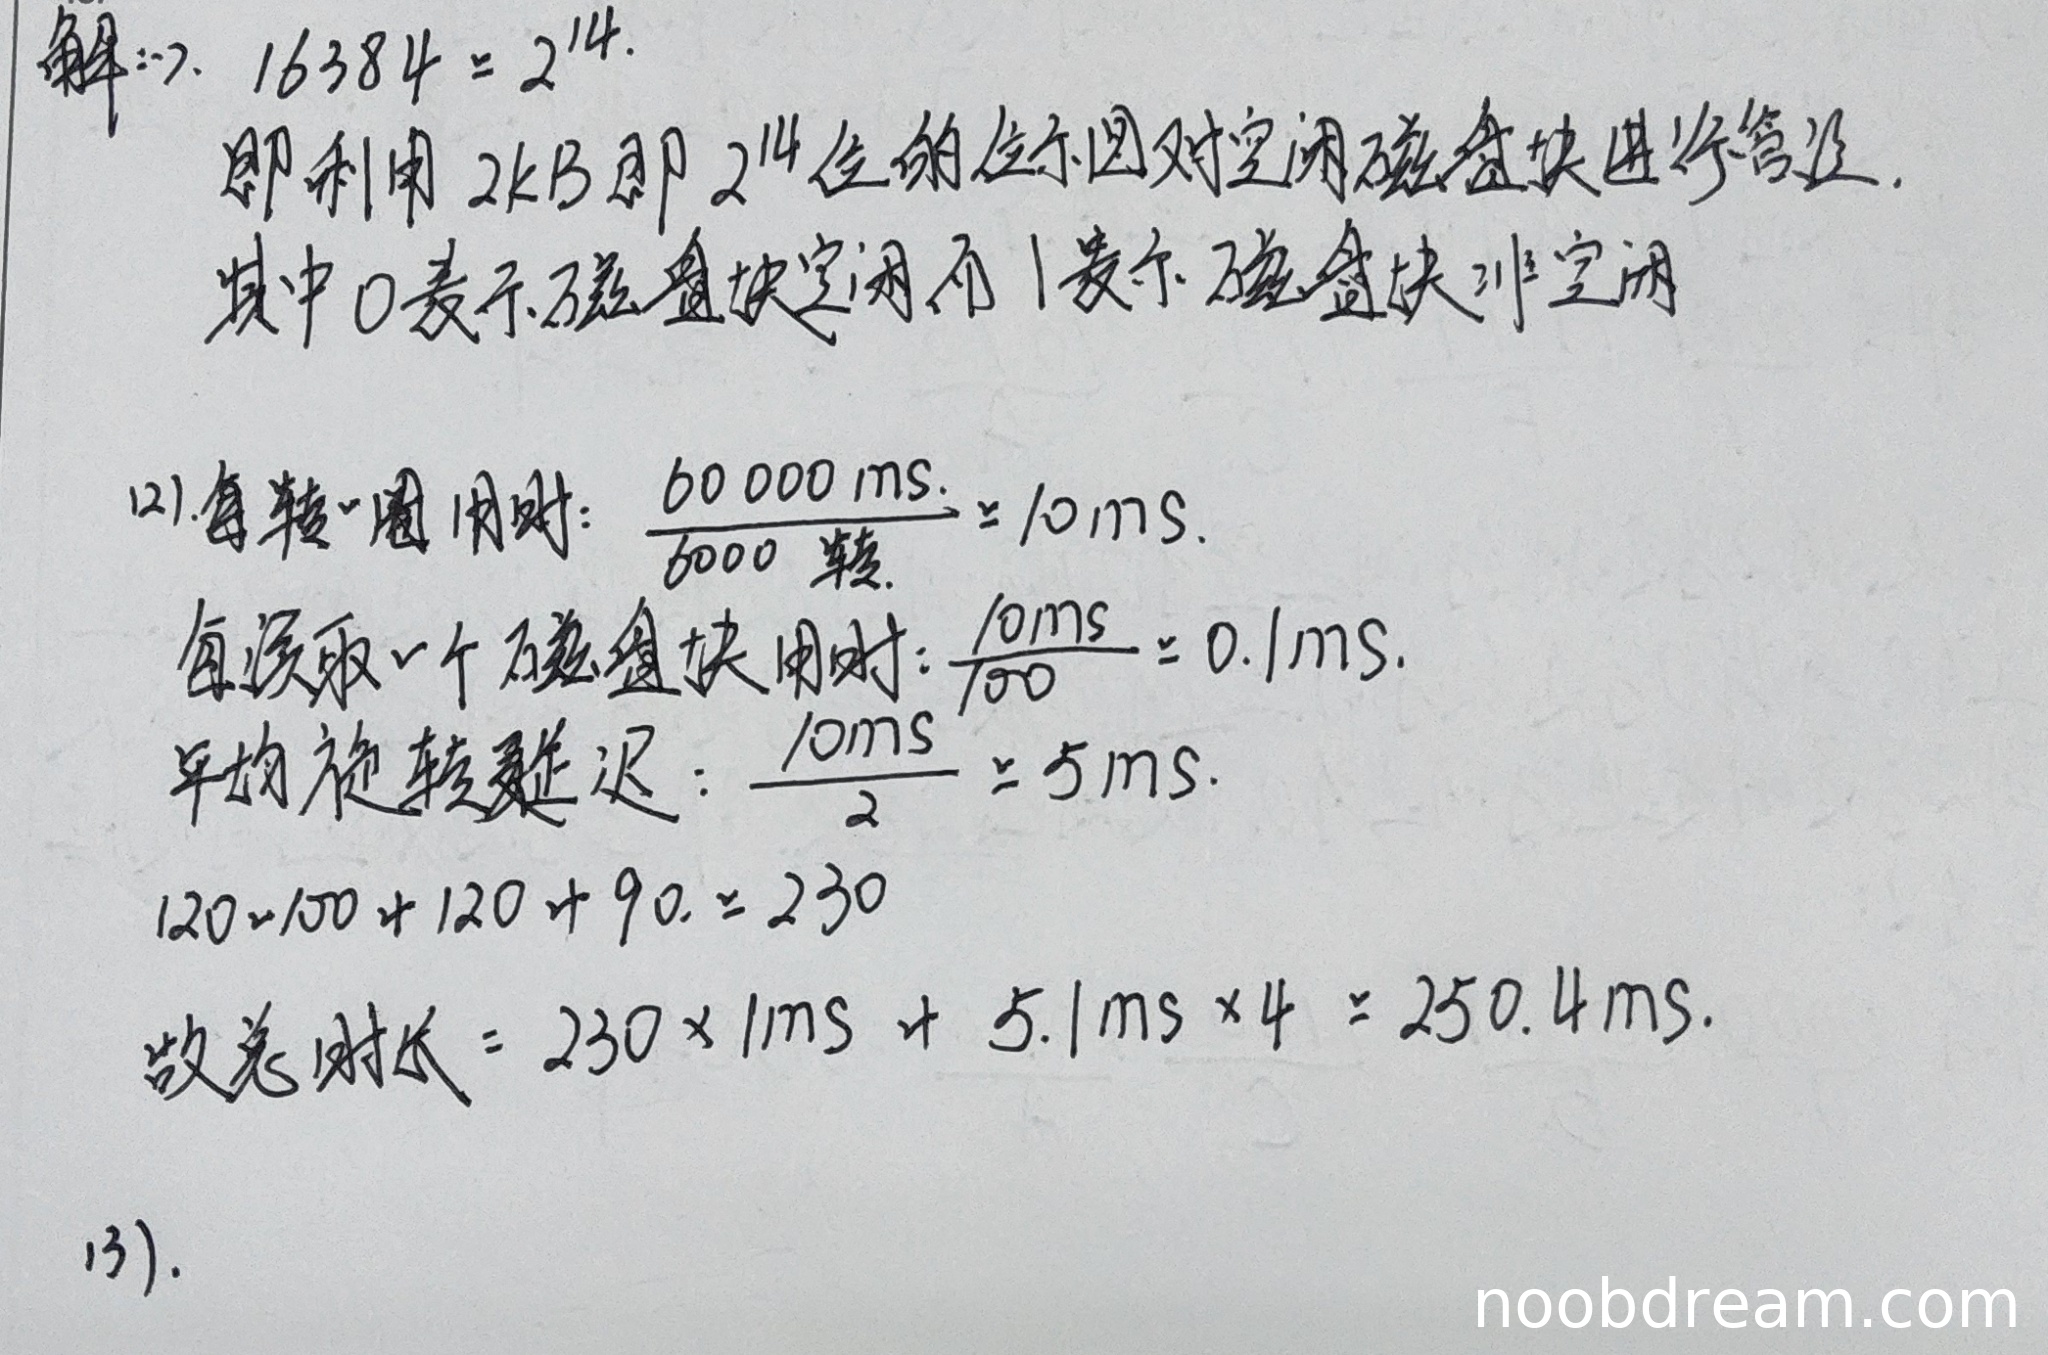 解:(1). 16384 = 2^14.
即利用 2KB 即 2^14 位的位示图对空闲磁盘块进行管理.
其中 0 表示磁盘块空闲而 1 表示磁盘块非空闲
(2).每转一圈用时: 60000ms. / 6000 转. = 10ms.
每读取一个磁盘块用时: 10ms / 100 = 0.1ms.
平均旋转延迟: 10ms / 2 = 5ms.
120-100 + 120 + 90. = 230
故总时长 = 230 × 1ms + 5.1ms × 4 = 250.4ms.
(3).
noobdream.com